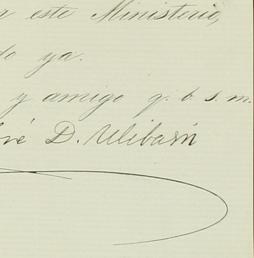 este Ministerio,
ya.
y amigo q. b. s. m.
José D. Ulibarri